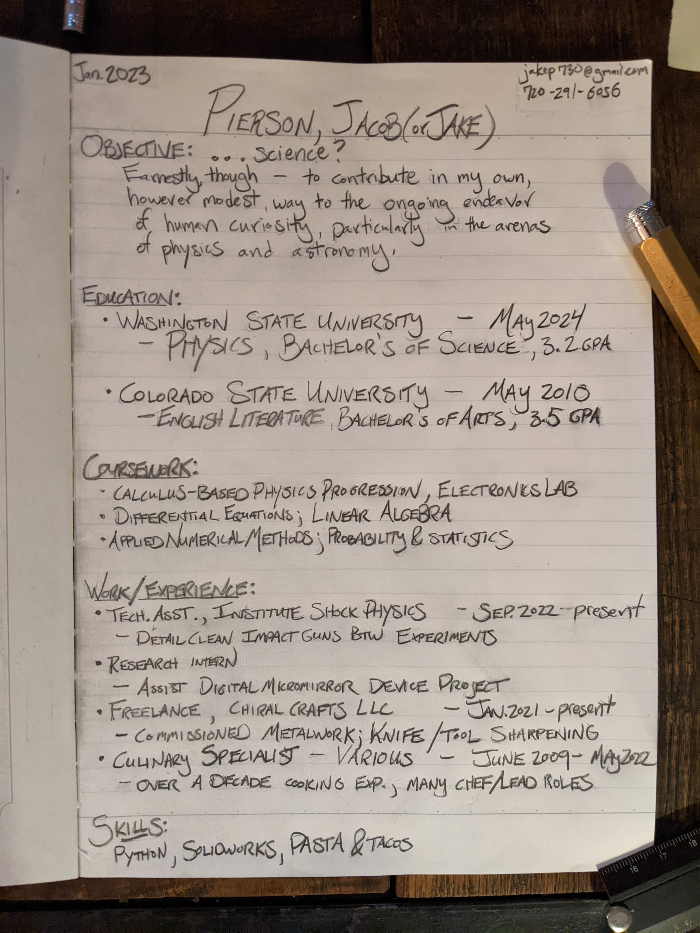 Jan. 2023
jakep730@gmail.com
720-291-6056
PIERSON, JACOB (or JAKE)
OBJECTIVE: ... science?
Earnestly, though — to contribute in my own,
however modest, way to the ongoing endeavor
of human curiosity, particularly in the arenas
of physics and astronomy.
EDUCATION:
• WASHINGTON STATE UNIVERSITY — MAY 2024
— PHYSICS, BACHELOR'S OF SCIENCE, 3.2 GPA
• COLORADO STATE UNIVERSITY — MAY 2010
— ENGLISH LITERATURE, BACHELOR'S OF ARTS, 3.5 GPA
COURSEWORK:
• CALCULUS-BASED PHYSICS PROGRESSION, ELECTRONICS LAB
• DIFFERENTIAL EQUATIONS; LINEAR ALGEBRA
• APPLIED NUMERICAL METHODS; PROBABILITY & STATISTICS
WORK/EXPERIENCE:
• TECH. ASST., INSTITUTE SHOCK PHYSICS — SEP. 2022 - present
— DETAIL CLEAN IMPACT GUNS BTW EXPERIMENTS
• RESEARCH INTERN
— ASSIST DIGITAL MICROMIRROR DEVICE PROJECT
• FREELANCE, CHIRAL CRAFTS LLC — JAN. 2021 - present
— COMMISSIONED METALWORK; KNIFE/TOOL SHARPENING
• CULINARY SPECIALIST — VARIOUS — JUNE 2009 - MAY 2022
— OVER A DECADE COOKING EXP.; MANY CHEF/LEAD ROLES
SKILLS:
PYTHON, SOLIDWORKS, PASTA & TACOS
16 17 18